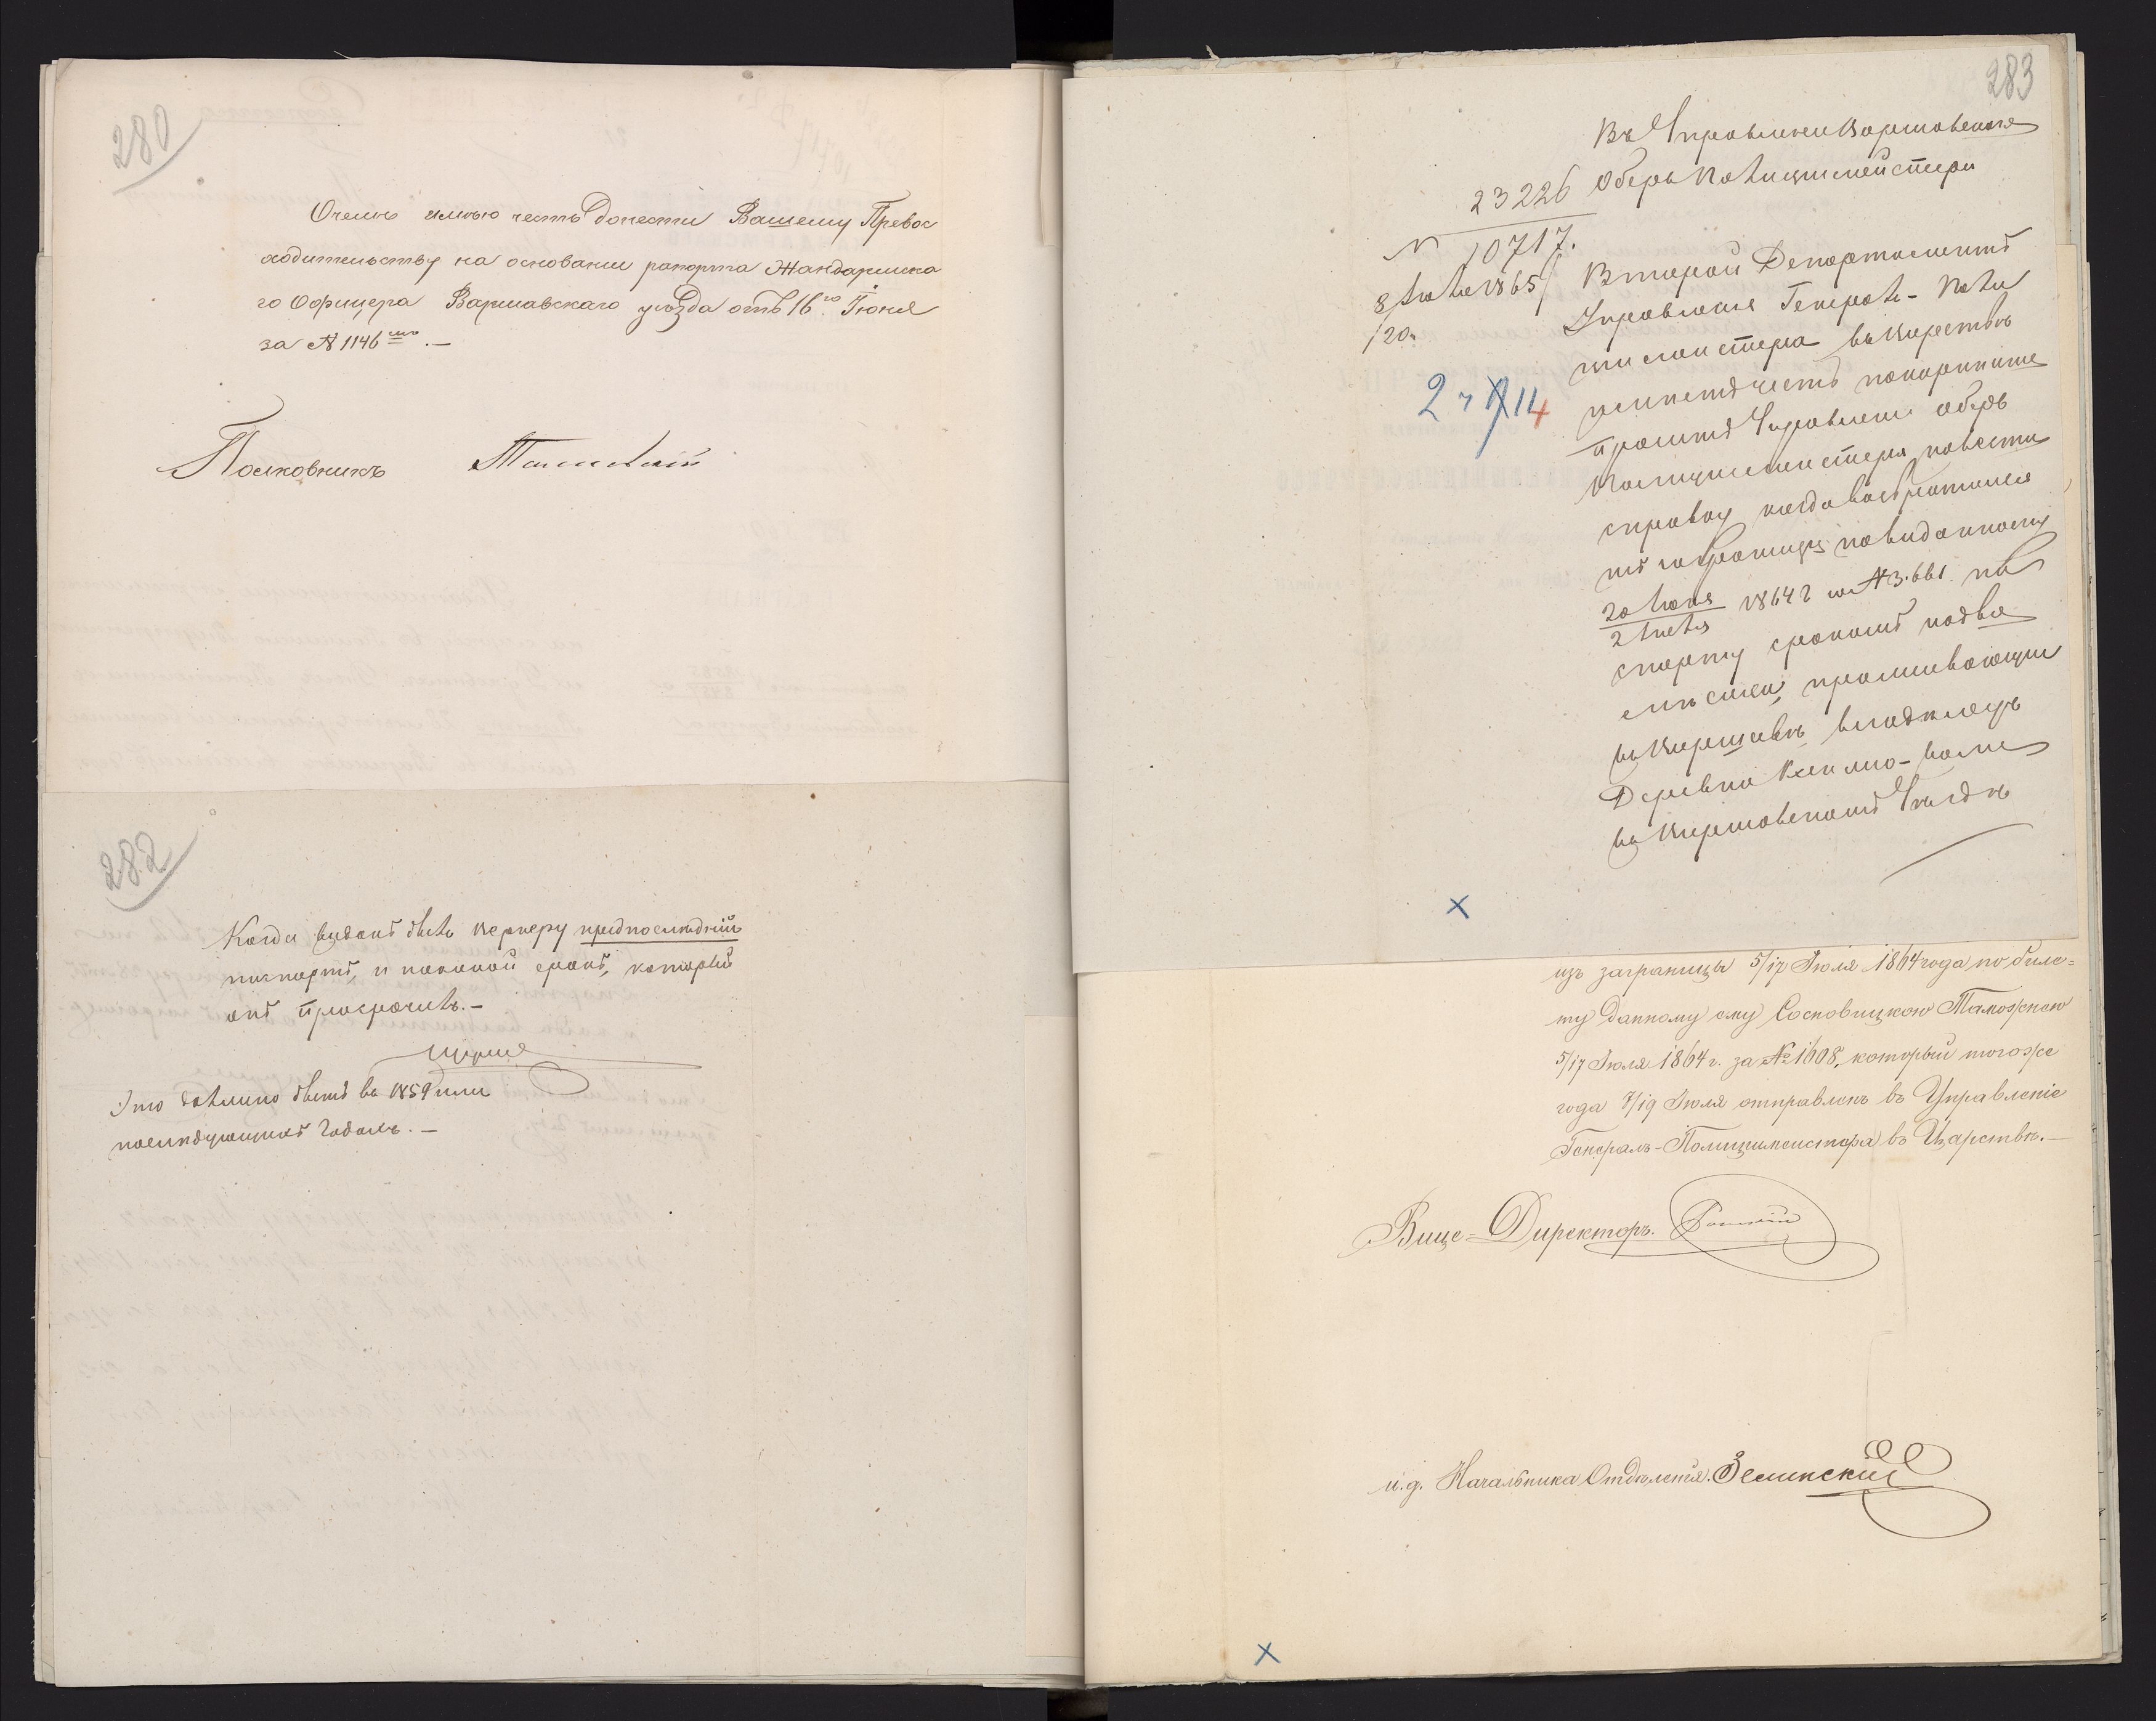 280
О чемъ имѣю честь донести Вашему Превос
ходительству на основаніи рапорта Жандармска
го Офицера Варшавскаго уѣзда отъ 16го Іюня
за № 1146мъ.—
Полковникъ
282
Когда выданъ былъ Кернеру предпослѣдній
паспортъ, и на какой срокъ, который
онъ просрочилъ.—
Это должно быть въ 1859 или
послѣдующихъ годахъ.—
283
Въ Управленіи Варшавскаго
23226 Оберъ Полицмейстера
№ 10717.
8/20 Іюля 1865
2 ч 14
Второй Департаментъ
Управленія Генералъ-Поли
цмейстера въ Царствѣ
имѣетъ честь покорнѣйше
просить Управленіе Оберъ
Полицмейстера навести
справку когда возвратился
изъ заграницы по выданному
20 Іюня/2 Іюля 1864 г за № 3.661 па
спорту срокомъ на два
мѣсяца, проживающій
въ Варшавѣ, владѣлецъ
Деревни
въ Варшавскомъ Уѣздѣ
изъ заграницы 5/17 Іюля 1864 года по биле=
ту данному ему Сосновицкою Таможнею
5/17 Іюля 1864 г. за № 1608, который тогоже
года 7/19 Іюля отправленъ въ Управленіе
Генералъ-Полицимейстера въ Царствѣ.—
Вице=Директоръ.
и.д. Начальника Отдѣленія. Зелинскій